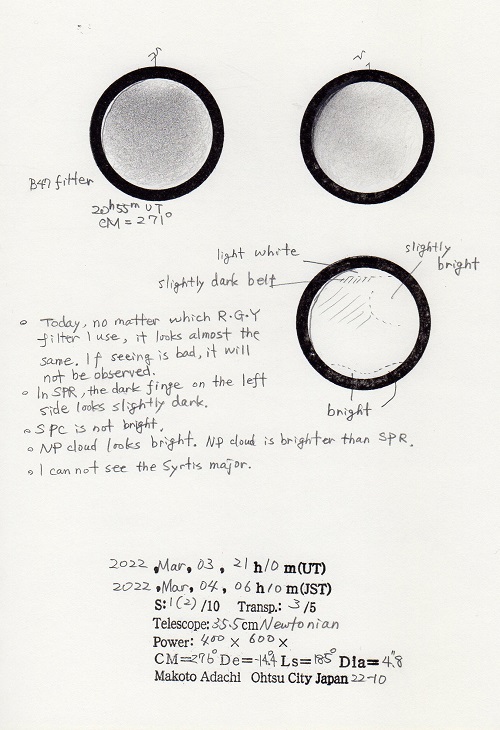 B47 filter
20h55m UT
CM=271°
light white
slightly bright
slightly dark belt
bright
○ Today, no matter which R.G.Y
filter I use, it looks almost the
same. If seeing is bad, it will
not be observed.
○ In SPR, the dark finge on the left
side looks slightly dark.
○ SPC is not bright.
○ NP cloud looks bright. NP cloud is brighter than SPR.
○ I can not see the Syrtis major.
2022, Mar, 03, 21 h 10 m (UT)
2022, Mar, 04, 06 h 10 m (JST)
S: 1(2) /10 Transp.: 3 /5
Telescope: 35.5cm Newtonian
Power: 400 × 600 ×
CM=276° De=-14.4° Ls=185° Dia=4.8"
Makoto Adachi Ohtsu City Japan 22-10